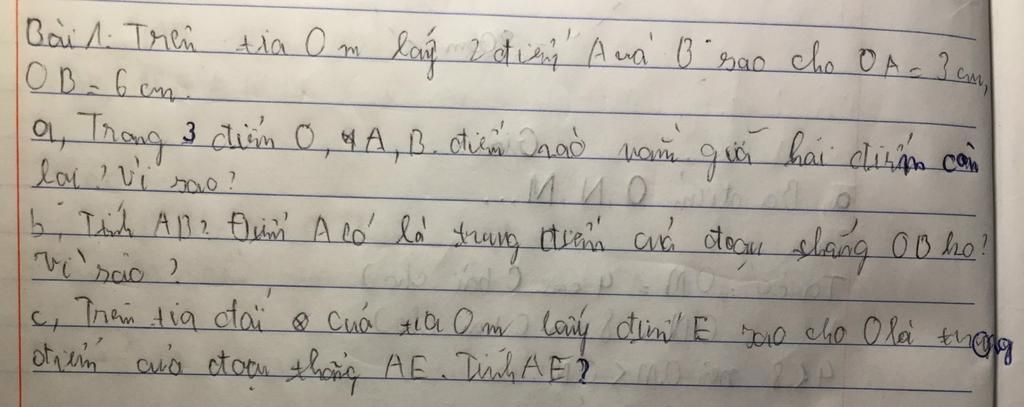 Bài 1: Trên tia Om lấy 2 điểm A và B sao cho OA = 3 cm,
OB = 6 cm.
a, Trong 3 điểm O, A, B. điểm nào nằm giữa hai điểm còn
lại? Vì sao?
b, Tính AB? Điểm A có là trung điểm của đoạn thẳng OB ko?
Vì sao?
c, Trên tia đối của tia Om lấy điểm E sao cho O là trung
điểm của đoạn thẳng AE. Tính AE?